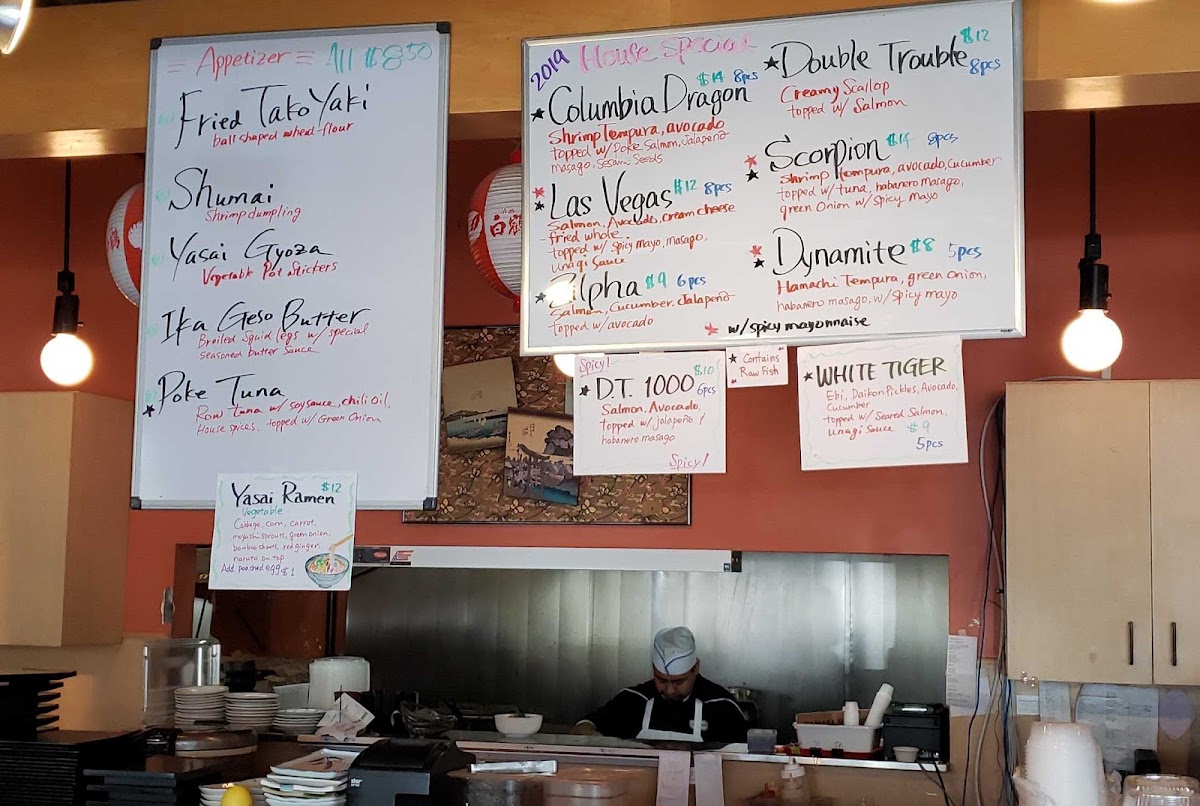 = Appetizer = All $8.50
Fried TakoYaki
ball shaped wheat-flour
Shumai
Shrimp dumpling
Yasai Gyoza
Vegetable Pot Stickers
Ika Geso Butter
Broiled Squid legs w/ special
seasoned butter sauce
Poke Tuna
Raw tuna w/ soysauce, chili Oil,
House spices, topped w/ Green Onion
Yasai Ramen $12
Vegetable
Cabbage, corn, carrot,
moyashi sprouts, green onion,
bamboo shoots, red ginger,
naruto on top
Add poached egg $1
2019 House Special
Columbia Dragon $14 8pcs
Shrimp Tempura, avocado
topped w/ Poke Salmon, Jalapeño
masago, Sesami Seeds
Las Vegas $12 8pcs
Salmon, Avocado, cream cheese
-fried whole.
topped w/ spicy mayo, masago,
unagi sauce
Alpha $9 6pcs
Salmon, Cucumber, Jalapeño
topped w/ avocado
Double Trouble $12 8pcs
Creamy Scallop
topped w/ Salmon
Scorpion $14 8pcs
Shrimp tempura, avocado, cucumber
topped w/ tuna, habanero masago,
green Onion w/ spicy mayo
Dynamite $8 5pcs
Hamachi Tempura, green onion,
habanero masago, w/ spicy mayo
w/ spicy mayonnaise
Spicy!
D.T. 1000 $10 6pcs
Salmon, Avocado,
topped w/ jalapeño &
habanero masago
Spicy!
Contains
Raw Fish
WHITE TIGER
Ebi, Daikon Pickles, Avocado,
Cucumber
topped w/ Seared Salmon,
unagi Sauce $9
5pcs
白鶴